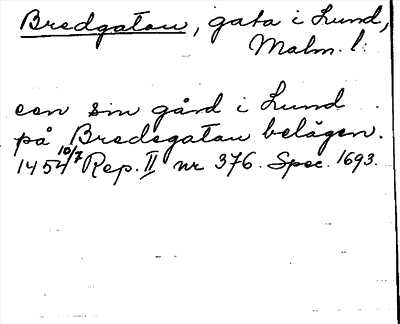 Bredgatan, gata i Lund,
Malm. l:
een sin gård i Lund
på Bredegatan belägen.
1454 10/7 Rep. II nr 376. Spec. 1693.